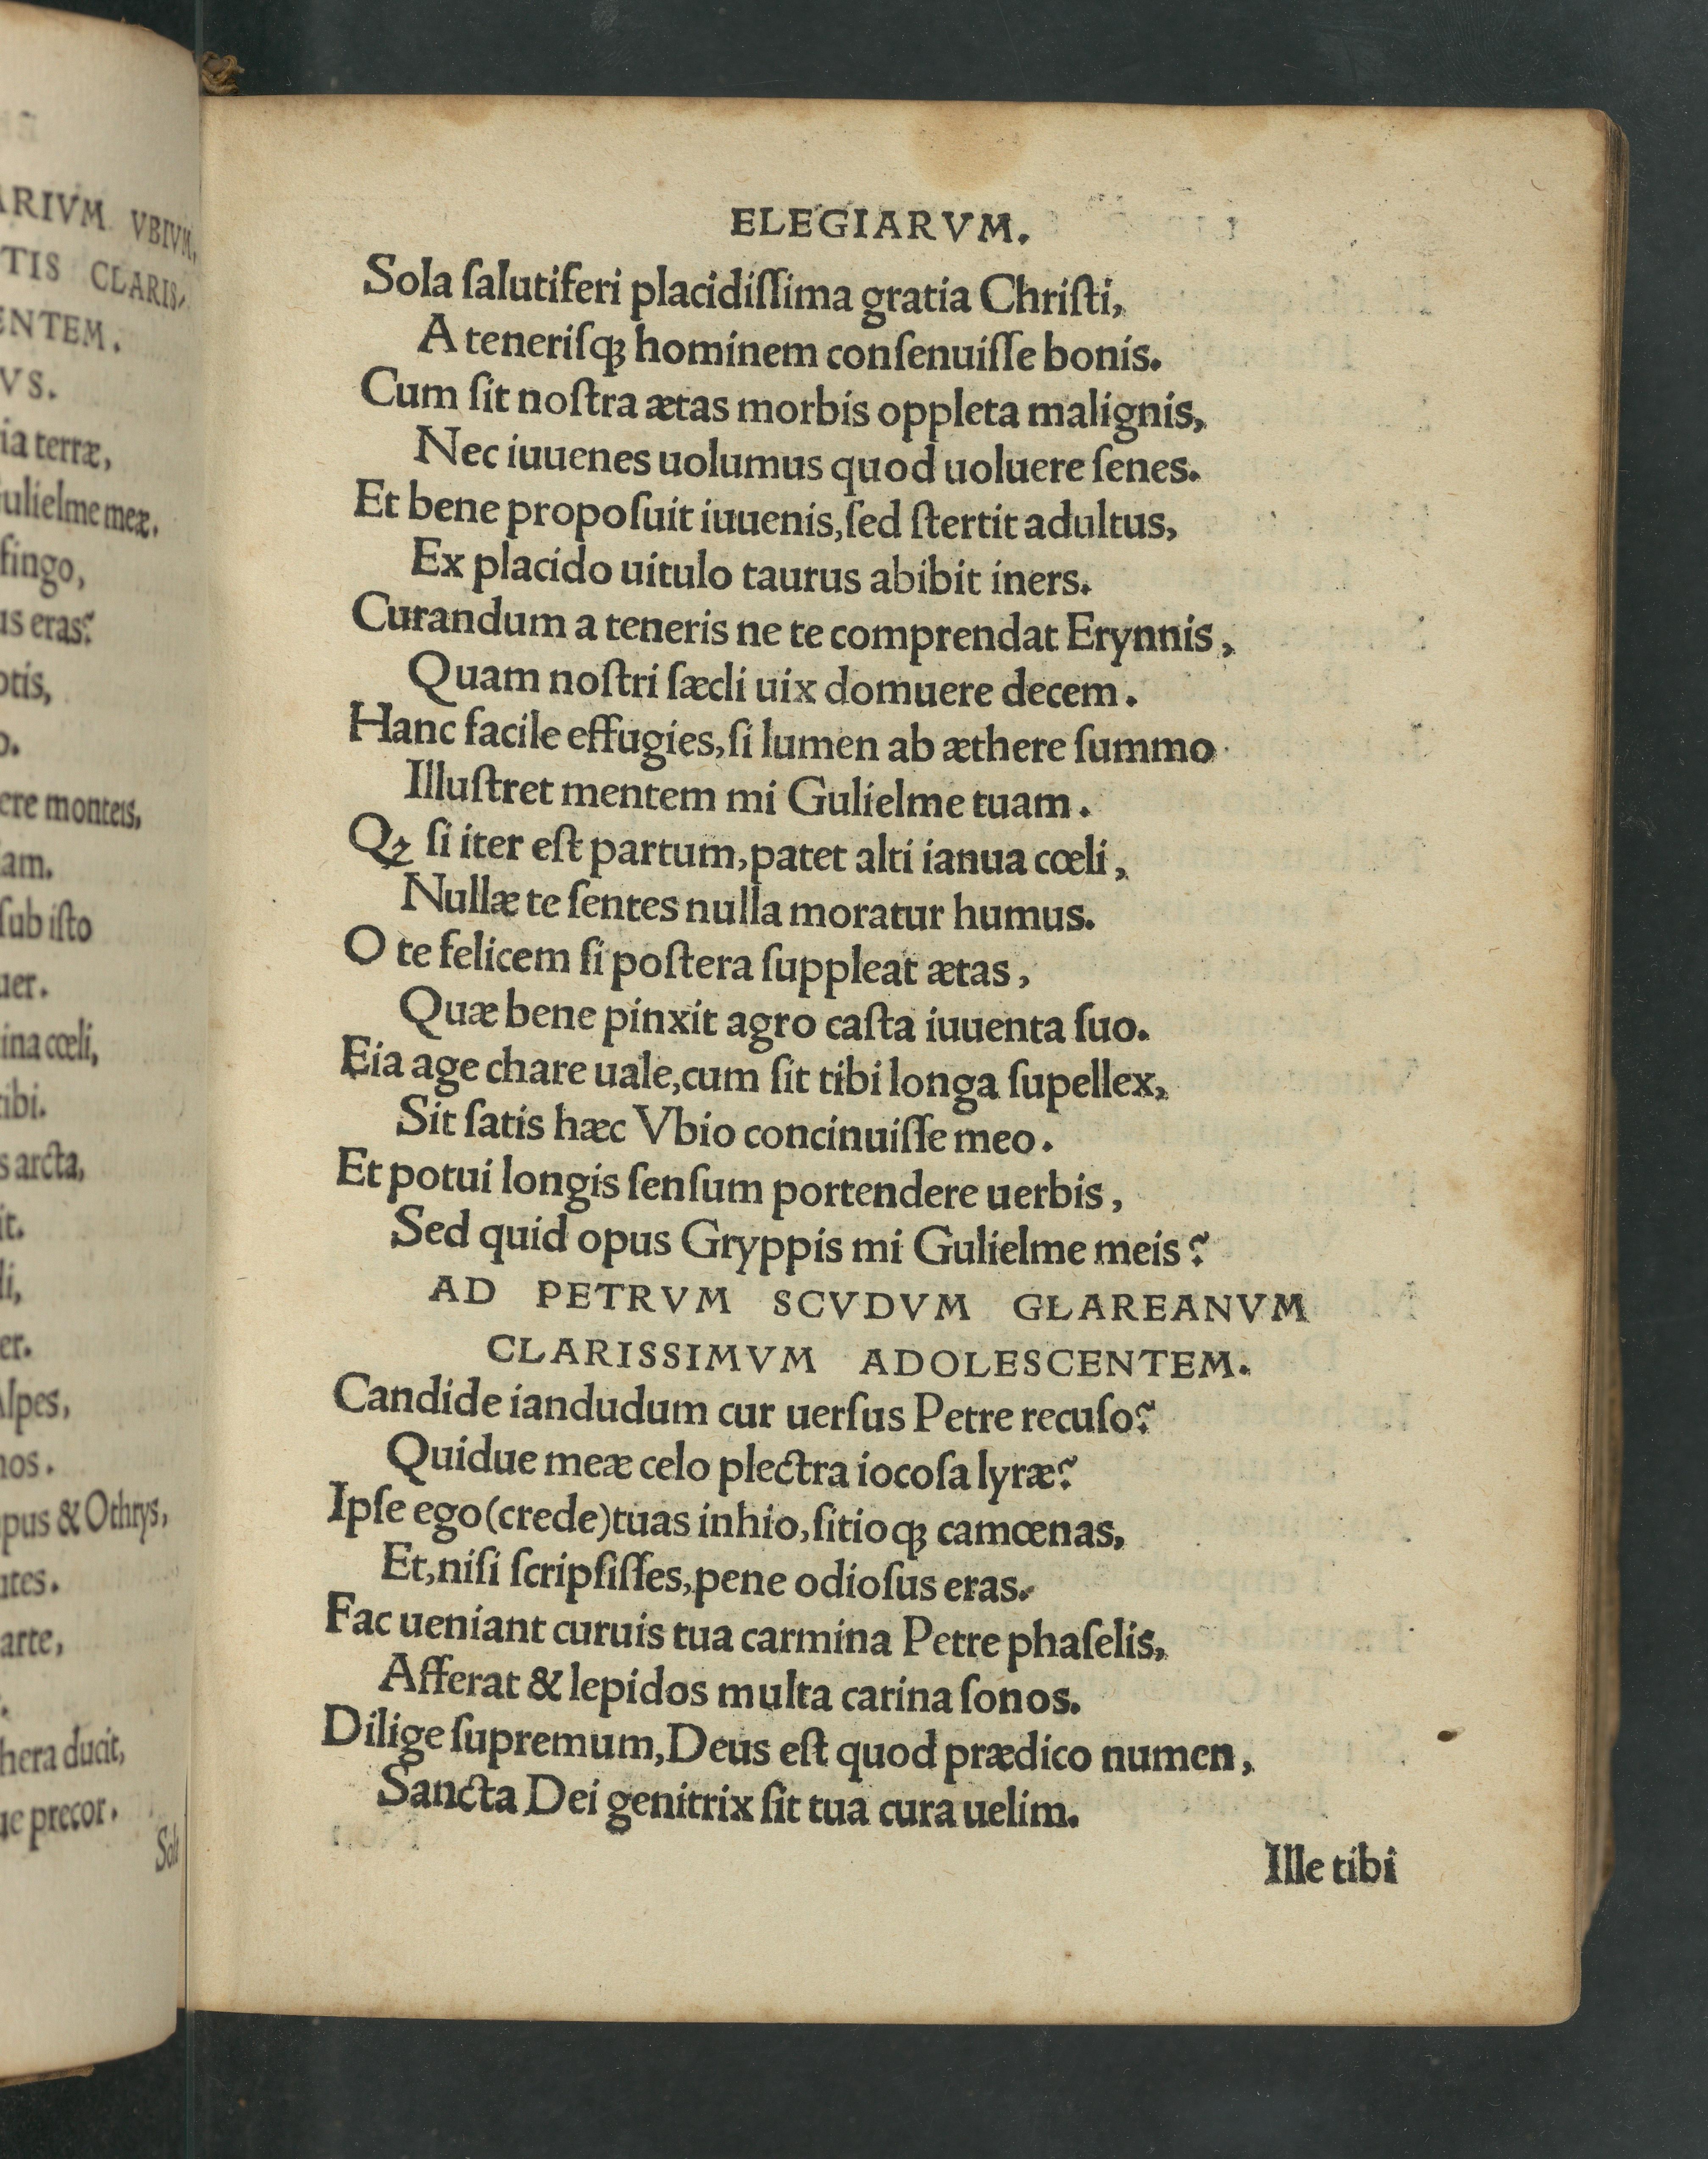 ARIVM VBIVM,
TIS CLARIS-
ENTEM.
VS.
ia terræ,
ulielme meæ.
fingo,
us eras?
otis,
o.
ere monteis,
am.
ſub iſto
uer.
ina cœli,
ibi.
s arcta,
it.
li,
er.
Alpes,
nos.
pus & Othrys,
utes.
arte,
hera ducit,
ue precor.
Sola
ELEGIARVM.
Sola ſalutiferi placidiſſima gratia Chriſti,
A teneriſqꝫ hominem conſenuiſſe bonis.
Cum ſit noſtra ætas morbis oppleta malignis,
Nec iuuenes uolumus quod uoluere ſenes.
Et bene propoſuit iuuenis, ſed ſtertit adultus,
Ex placido uitulo taurus abibit iners.
Curandum a teneris ne te comprendat Erynnis,
Quam noſtri ſæcli uix domuere decem.
Hanc facile effugies, ſi lumen ab æthere ſummo
Illuſtret mentem mi Gulielme tuam.
Qꝫ ſi iter eſt partum, patet alti ianua cœli,
Nullæ te ſentes nulla moratur humus.
O te felicem ſi poſtera ſuppleat ætas,
Quæ bene pinxit agro caſta iuuenta ſuo.
Eia age chare uale, cum ſit tibi longa ſupellex,
Sit ſatis hæc Vbio concinuiſſe meo.
Et potui longis ſenſum portendere uerbis,
Sed quid opus Gryppis mi Gulielme meis?
AD PETRVM SCVDVM GLAREANVM
CLARISSIMVM ADOLESCENTEM.
Candide iandudum cur uerſus Petre recuſo?
Quidue meæ celo plectra iocoſa lyræ?
Ipſe ego (crede) tuas inhio, ſitioqꝫ camœnas,
Et, niſi ſcripſiſſes, pene odioſus eras.
Fac ueniant curuis tua carmina Petre phaſelis,
Afferat & lepidos multa carina ſonos.
Dilige ſupremum, Deus eſt quod prædico numen,
Sancta Dei genitrix ſit tua cura uelim.
Ille tibi